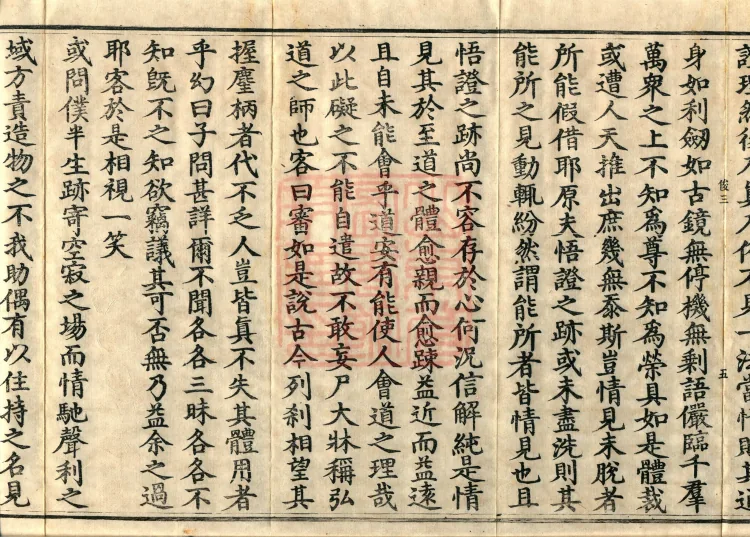 身如利劒如古鏡無停機無剩語儼臨千群
萬衆之上不知為尊不知為榮具如是體裁
或遭人天推出庶幾無忝斯豈情見未脫者
所能假借耶原夫悟證之跡或未盡洗則其
能所之見動輒紛然謂能所者皆情見也且
悟證之跡尚不容存於心何況信解純是情
見其於至道之體愈親而愈踈益近而益遠
且自未能會乎道安有能使人會道之理哉
以此礙之不能自遣故不敢妄尸大牀稱弘
道之師也客曰審如是說古今列刹相望其
握麈柄者代不乏人豈皆眞不失其體用者
乎幻曰子問甚詳爾不聞各各三昧各各不
知旣不之知欲竊議其可否無乃益余之過
耶客於是相視一笑
或問僕半生跡寄空寂之場而情馳聲利之
域方責造物之不我助偶有以住持之名見
俊三
五